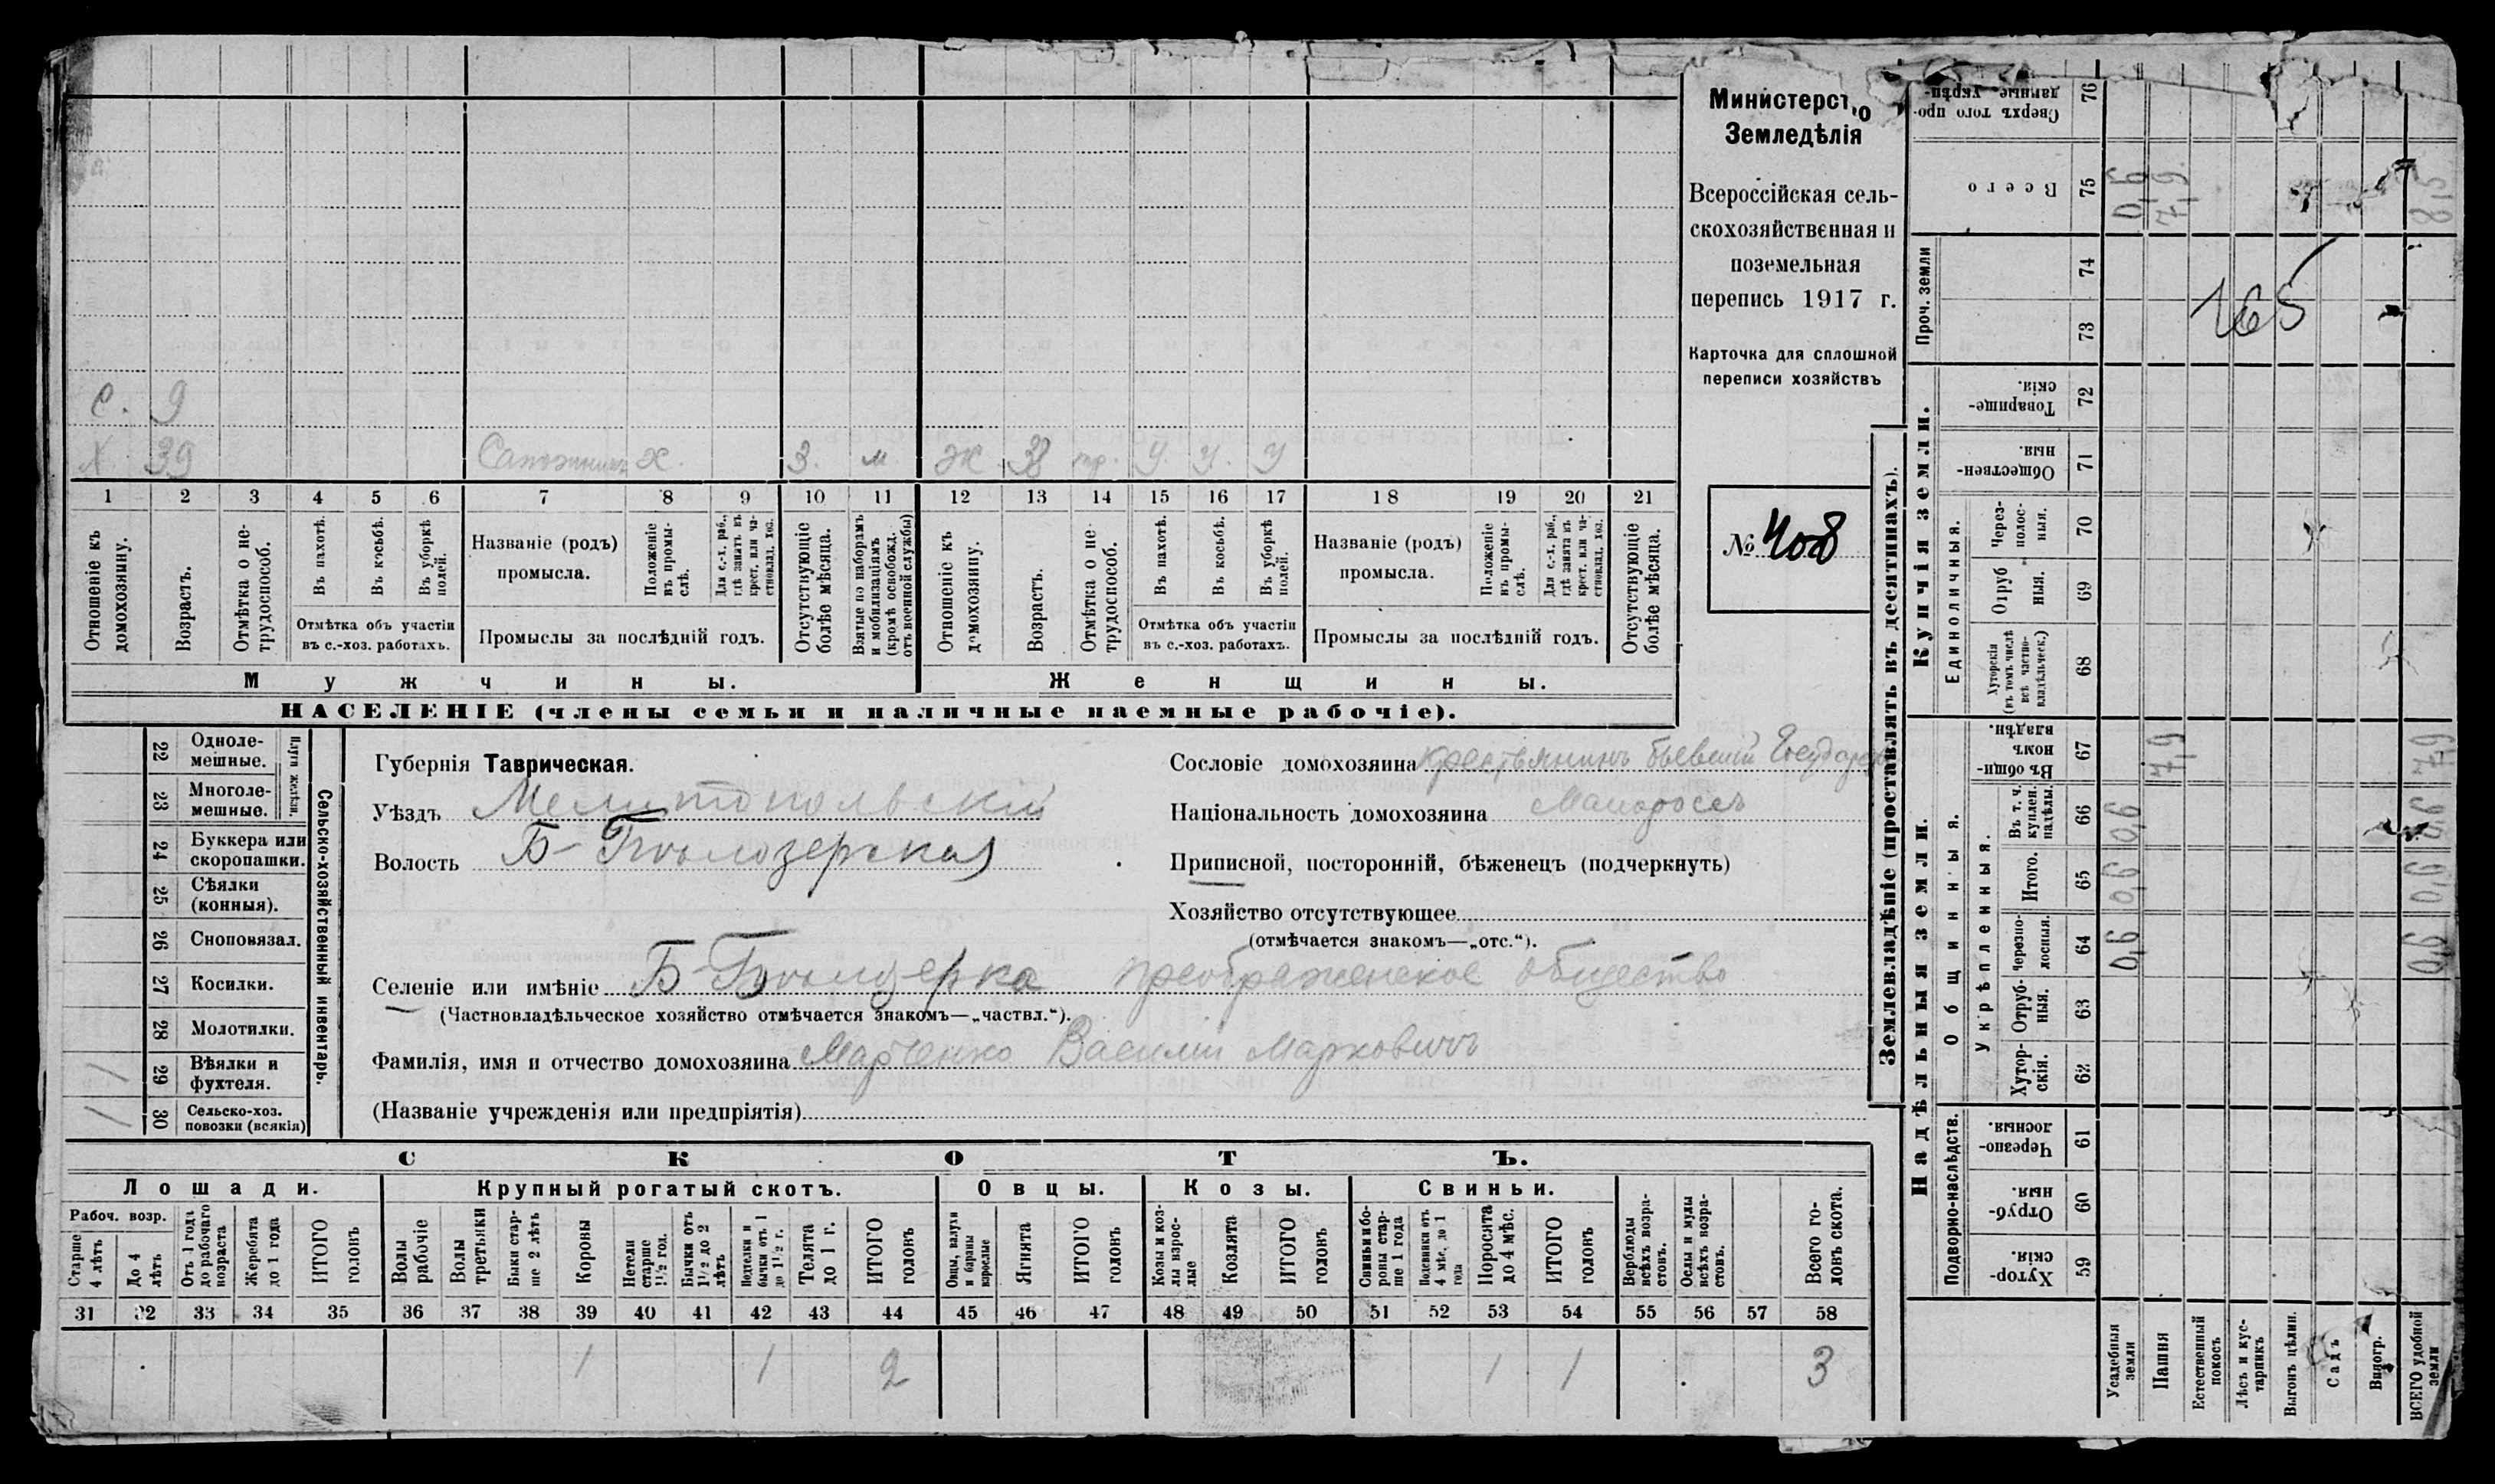 Министерство
Земледѣлія
Всероссійская сель-
скохозяйственная и
поземельная
перепись 1917 г.
Карточка для сплошной
переписи хозяйствъ
№ 408
С. 9
Х 39 Сапожникъ х. 3. м. Ж 38 тр. У. У. У
1 2 3 4 5 6 7 8 9 10 11 12 13 14 15 16 17 18 19 20 21
Отношеніе къ домохозяину.
Возрастъ.
Отмѣтка о не-трудоспособ.
Въ пахотѣ.
Въ косьбѣ.
Въ уборкѣ полей.
Отмѣтка объ участіи
въ с.-хоз. работахъ.
Названіе (родъ)
промысла.
Положеніе въ промы-слѣ.
Для с.-х. раб., гдѣ занятъ въ крест. или ча-стновлад. хоз.
Промыслы за послѣдній годъ.
Отсутствующіе болѣе мѣсяца.
Взятые по наборамъ и мобилизаціямъ (кромѣ освобожд. отъ военной службы)
Отношеніе къ домохозяину.
Возрастъ.
Отмѣтка о не-трудоспособ.
Въ пахотѣ.
Въ косьбѣ.
Въ уборкѣ полей.
Отмѣтка объ участіи
въ с.-хоз. работахъ.
Названіе (родъ)
промысла.
Положеніе въ промы-слѣ.
Для с.-х. раб., гдѣ занята въ крест. или ча-стновлад. хоз.
Промыслы за послѣдній годъ.
Отсутствующіе болѣе мѣсяца.
Мужчины. Женщины.
НАСЕЛЕНІЕ (члены семьи и наличные наемные рабочіе).
Сельско-хозяйственный инвентарь.
Плуги желѣзн.
22 Одноле-мешные.
23 Многоле-мешные.
24 Буккера или скоропашки.
25 Сѣялки (конныя).
26 Сноповязал.
27 Косилки.
28 Молотилки.
29 Вѣялки и фухтеля. 1
30 Сельско-хоз. повозки (всякія) 1
Губернія Таврическая.
Уѣздъ Мелитопольскій
Волость Б-Бѣлозерская
Сословіе домохозяина крестьянинъ бывшій Государ
Національность домохозяина Малороссъ
Приписной, посторонній, бѣженецъ (подчеркнуть)
Хозяйство отсутствующее
(отмѣчается знакомъ—„отс.“).
Селеніе или имѣніе Б-Бѣлозерка преображенское общество
(Частновладѣльческое хозяйство отмѣчается знакомъ—„частвл.“).
Фамилія, имя и отчество домохозяина Марченко Василій Марковичъ
(Названіе учрежденія или предпріятія)
СКОТЪ.
Лошади. Крупный рогатый скотъ. Овцы. Козы. Свиньи.
Рабоч. возр.
Старше 4 лѣтъ
До 4 лѣтъ
Отъ 1 года до рабочаго возраста
Жеребята до 1 года
ИТОГО головъ
Волы рабочіе
Волы третьяки
Быки стар-ше 2 лѣтъ
Коровы
Нетели старше 1½ год.
Бычки отъ 1½ до 2 лѣтъ
Подтелки и бычки отъ 1 до 1½ г.
Телята до 1 г.
ИТОГО головъ
Овцы, валухи и бараны взрослые
Ягнята
ИТОГО головъ
Козы и коз-лы взрос-лые
Козлята
ИТОГО головъ
Свиньи бо-ровы стар-ше 1 года
Подсвинки отъ 4 мѣс. до 1 года
Поросята до 4 мѣс.
ИТОГО головъ
Верблюды всѣхъ возра-стовъ.
Ослы и мулы всѣхъ возра-стовъ.
Всего го-ловъ скота.
31 32 33 34 35 36 37 38 39 40 41 42 43 44 45 46 47 48 49 50 51 52 53 54 55 56 57 58
1 1 2 1 1 3
Землевладѣніе (проставлять въ десятинахъ).
Надѣльныя земли. Купчія земли. Проч. земли
Подворно-наслѣдств. Общинныя. Укрѣпленныя. Единоличныя.
Хутор-скія. 59
Отруб-ныя. 60
Черезпо-лосныя. 61
Хутор-скія. 62
Отруб-ныя. 63
Черезпо-лосныя. 64
Итого. 65
Въ т. ч. куплен. надѣлы. 66
Въ общи-номъ владѣн. 67
Хуторскія (въ томъ числѣ всѣ частно-владѣльческ.) 68
Отруб-ныя. 69
Через-полос-ныя. 70
Обществен-ныя. 71
Товарище-скія. 72
73
74
Всего 75
Сверхъ того про-данные укрѣп- 76
Усадебныя земли 0,6 0,6 0,6 0,6
Пашня 7,9 7,9
Естественный покосъ
Лѣсъ и кус-тарникъ
Выгонъ цѣлин.
Садъ
Виногр.
ВСЕГО удобной земли 0,6 0,6 0,6 7,9 8,5
165